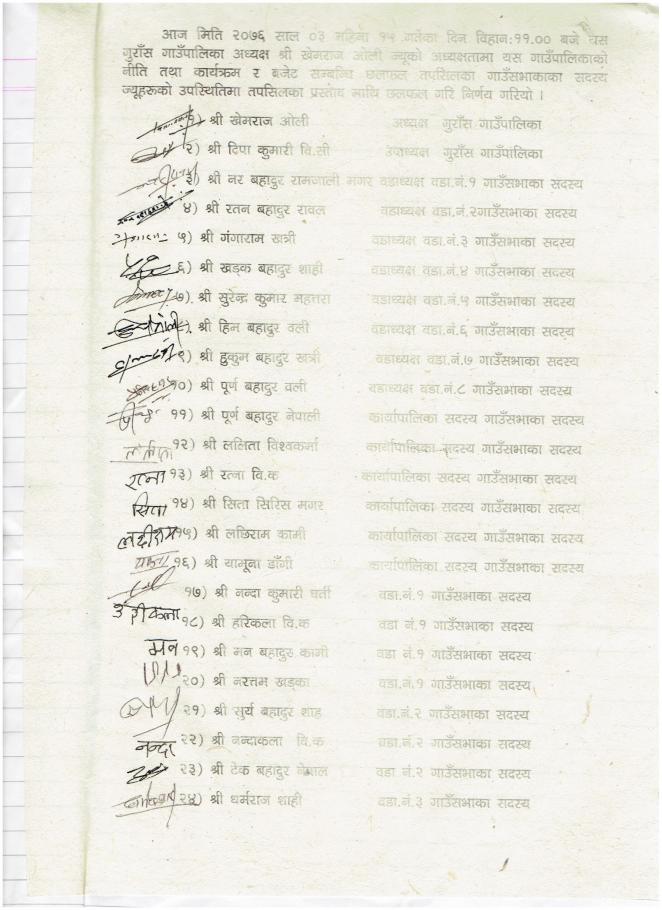 आज मिति २०७६ साल ०३ महिना १५ गतेका दिन विहान:११.०० बजे यस
गुराँस गाउँपालिका अध्यक्ष श्री खेमराज ओली ज्यूको अध्यक्षतामा यस गाउँपालिकाको
नीति तथा कार्यक्रम र बजेट सम्बन्धि छलाछल तपसिलका गाउँसभाकाका सदस्य
ज्यूहरूको उपस्थितिमा तपसिलका प्रस्ताव माथि छलफल गरि निर्णय गरियो ।
१) श्री खेमराज ओली अध्यक्ष गुराँस गाउँपालिका
२) श्री दिपा कुमारी वि.सी उपाध्यक्ष गुराँस गाउँपालिका
३) श्री नर बहादुर रामजाली मगर वडाध्यक्ष वडा.नं.१ गाउँसभाका सदस्य
४) श्री रतन बहादुर रावल वडाध्यक्ष वडा.नं.२गाउँसभाका सदस्य
५) श्री गंगाराम खत्री वडाध्यक्ष वडा.नं.३ गाउँसभाका सदस्य
६) श्री खड्क बहादुर शाही वडाध्यक्ष वडा.नं.४ गाउँसभाका सदस्य
७) श्री सुरेन्द्र कुमार महत्तरा वडाध्यक्ष वडा.नं.५ गाउँसभाका सदस्य
श्री हिम बहादुर वली वडाध्यक्ष वडा.नं.६ गाउँसभाका सदस्य
९) श्री हुकुम बहादुर खत्री वडाध्यक्ष वडा.नं.७ गाउँसभाका सदस्य
१०) श्री पूर्ण बहादुर वली वडाध्यक्ष वडा.नं.८ गाउँसभाका सदस्य
११) श्री पूर्ण बहादुर नेपाली कार्यापालिका सदस्य गाउँसभाका सदस्य
ललिता १२) श्री ललिता विश्वकर्मा कार्यापालिका सदस्य गाउँसभाका सदस्य
रत्ना १३) श्री रत्ना वि.क कार्यापालिका सदस्य गाउँसभाका सदस्य
सिता १४) श्री सिता सिरिस मगर कार्यापालिका सदस्य गाउँसभाका सदस्य
लछीराम १५) श्री लछिराम कामी कार्यापालिका सदस्य गाउँसभाका सदस्य
१६) श्री यामूना डाँगी कार्यापालिका सदस्य गाउँसभाका सदस्य
१७) श्री नन्दा कुमारी घर्ती वडा.नं.१ गाउँसभाका सदस्य
१८) श्री हरिकला वि.क वडा नं.१ गाउँसभाका सदस्य
मन १९) श्री मन बहादुर कामी वडा नं.१ गाउँसभाका सदस्य
२०) श्री नरत्तम खड्का वडा.नं.१ गाउँसभाका सदस्य
२१) श्री सुर्य बहादुर शाह वडा.नं.२ गाउँसभाका सदस्य
नन्दा २२) श्री नन्दाकला वि.क वडा.नं.२ गाउँसभाका सदस्य
२३) श्री टेक बहादुर नेपाल वडा नं.२ गाउँसभाका सदस्य
२४) श्री धर्मराज शाही वडा.नं.३ गाउँसभाका सदस्य